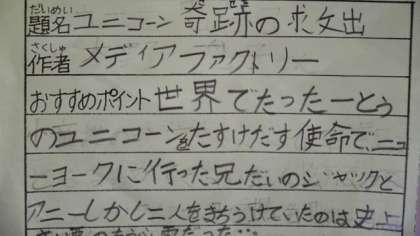 だいめい
題名 ユニコーン 奇跡の求出
さくしゃ
作者 メディアファクトリー
おすすめポイント 世界でたった一とう
のユニコーンをたすけだす使命で、ニュ
ーヨークに行った兄だいのジャックと
アニーしかし二人をまちうけていたのは史上